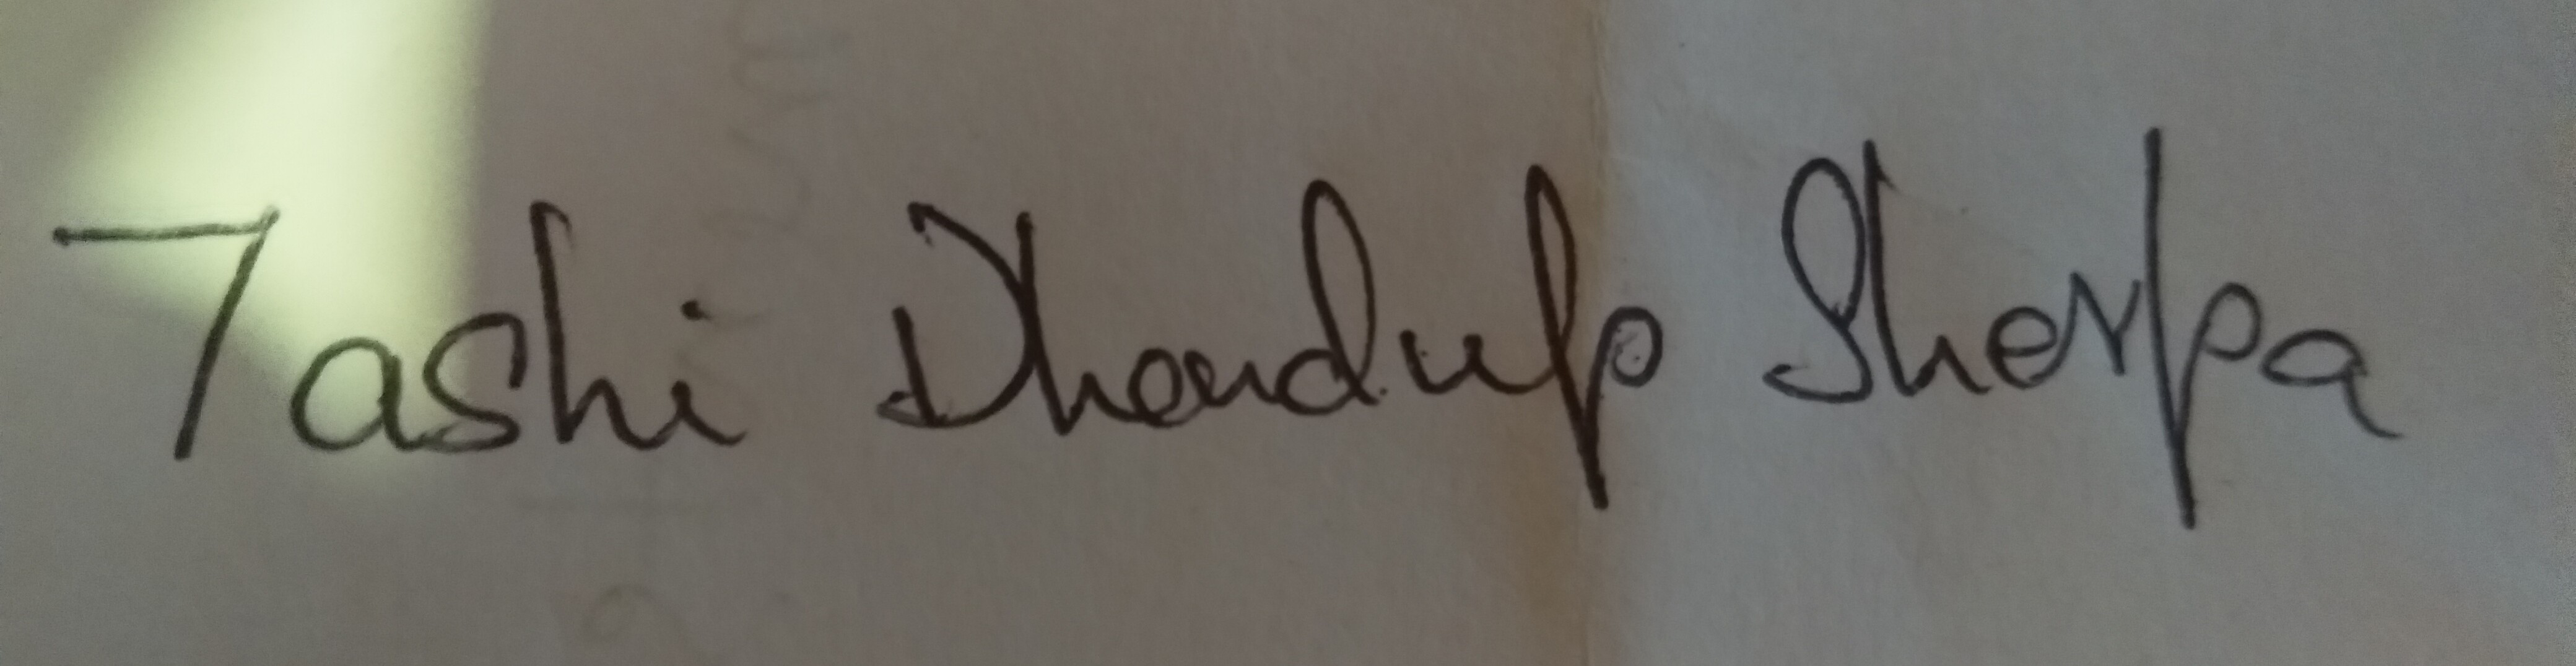 Tashi Dhondup Sherpa